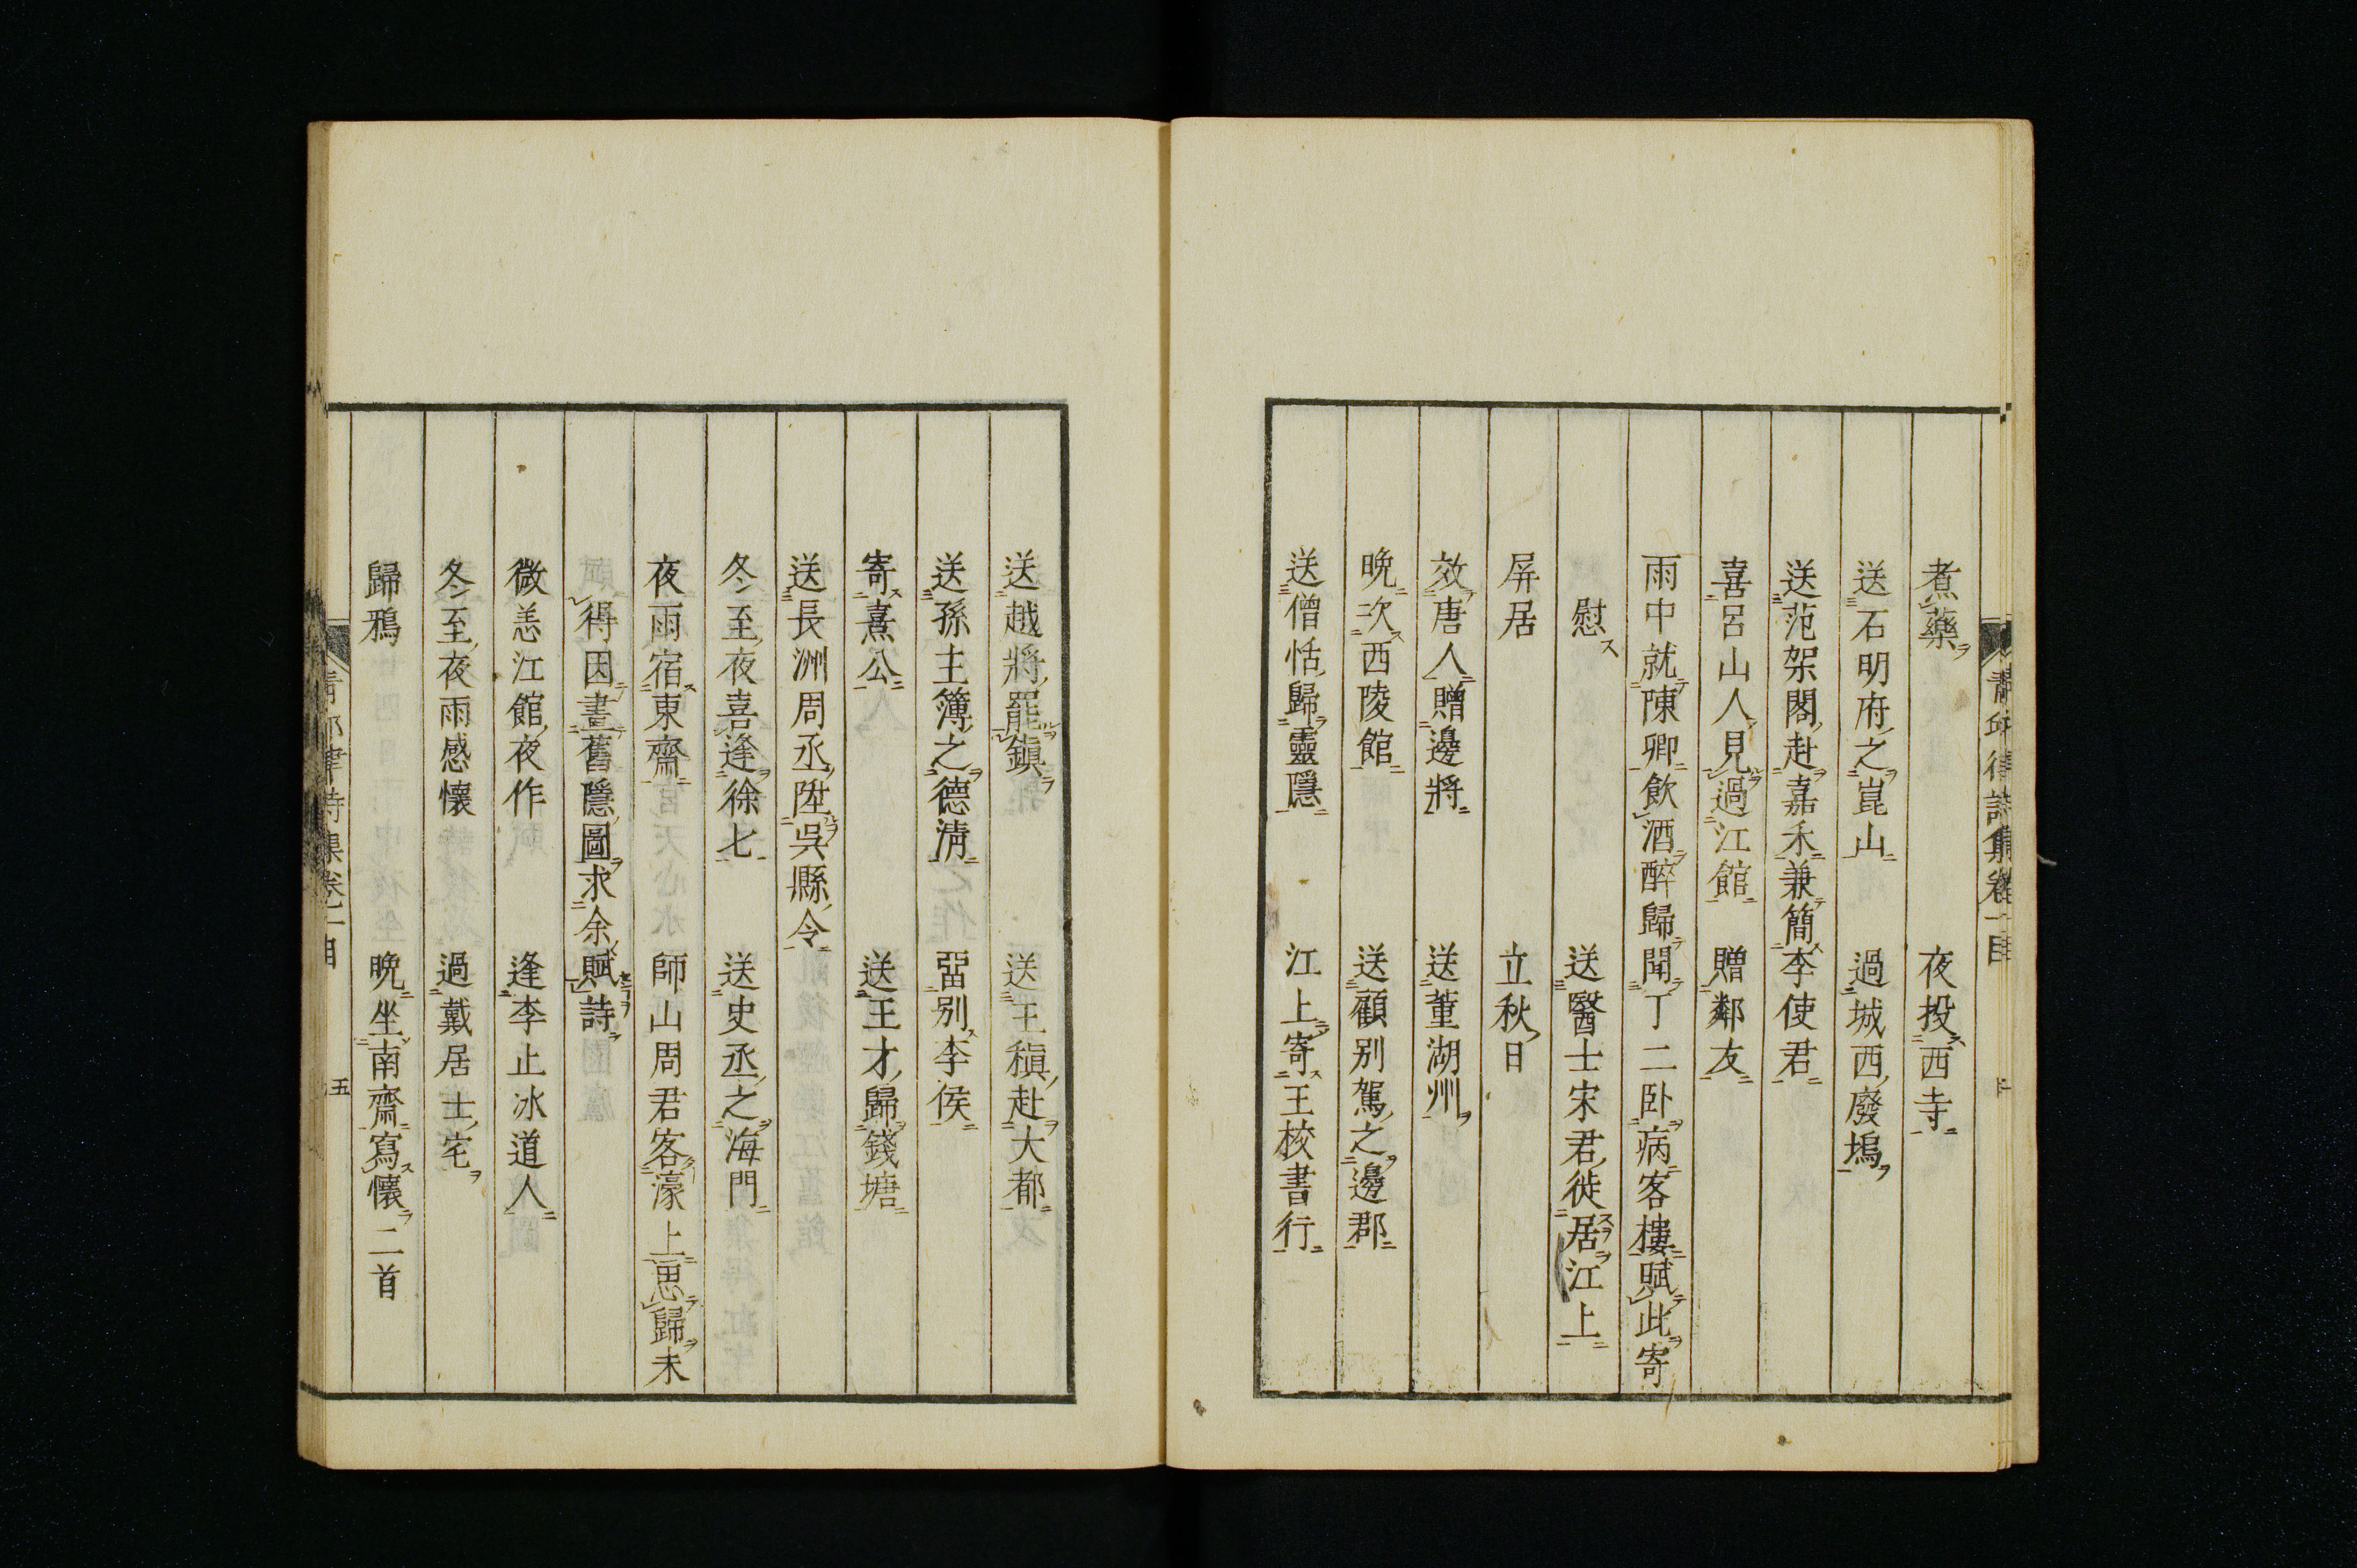 煮藥　夜投西寺
送石明府之崑山　過城西廢塢
送范架閣赴嘉禾兼簡李使君
喜呂山人見過江館　贈鄰友
雨中就陳卿飲酒醉歸聞丁二卧病客樓賦此寄
慰　送醫士宋君徙居江上
屏居　立秋日
效唐人贈邊將　送董湖州
晩次西陵館　送顧别駕之邊郡
送僧恬歸靈隱　江上寄王校書行
送越將罷鎭　送王稹赴大都
送孫主簿之德淸　畱别李侯
寄熹公　送王才歸錢塘
送長洲周丞陞吳縣令
冬至夜喜逢徐七　送史丞之海門
夜雨宿東齋　師山周君客濠上思歸未
得因畫舊隱圖求余賦詩
微恙江館夜作　逢李止冰道人
冬至夜雨感懷　過戴居士宅
歸鴉　晩坐南齋寫懷二首
靑邱律詩集卷一目　五